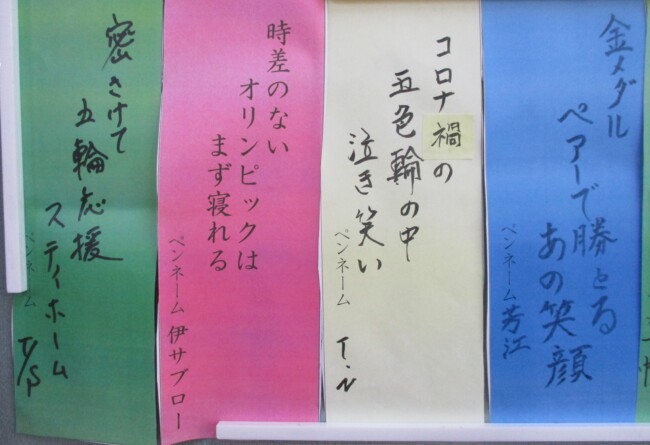 金メダル
ペアーで勝とる
あの笑顔
ペンネーム 芳江
コロナ禍の
五色輪の中
泣き笑い
ペンネーム T.N
時差のない
オリンピックは
まず寝れる
ペンネーム 伊サブロー
密さけて
五輪応援
スティホーム
ペンネーム T/S